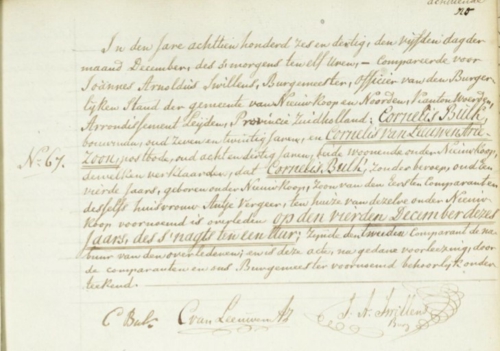 No 25
In den Jare achttien honderd zes en dertig, den vijfden dag der
maand December, des s'morgens ten elf Uren, — Compareerde voor
Joannes Arnoldus Swillens, Burgemeester, Officier van den Burger
lijken Stand der gemeente van Nieuwkoop en Noorden, Canton Woerden,
Arrondissement Leijden, Provincie Zuidholland; Cornelis Bulk,
bouwman, oud zeven en twintig Jaren, en Cornelis van Leeuwen Arie
Zoon, postbode, oud acht en dertig Jaren, beide wonende onder Nieuwkoop,
No. 67. dewelken verklaarden, dat Cornelis Bulk, zonder beroep, oud een
vierde Jaars, geboren onder Nieuwkoop, Zoon van den Eersten Comparant en
deszelfs huisvrouw Antje Verger, ten huize van dezelve onder Nieuw
koop voornoemd is overleden op den vierden December dezes
Jaars, des s'nagts ten een Uur; Zijnde den tweeden Comparant de na
buur van den overledenen; en is deze acte, na gedane voorlezing, door
de comparanten en ons Burgemeester voornoemd behoorlijk onder
teekend.
C Bulk C van Leeuwen AZ J. A. Swillens